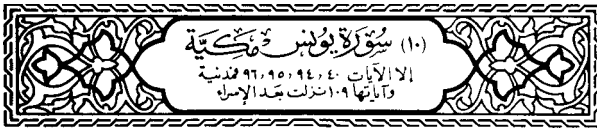 (١٠) سُورَة يُونسَ مَكيَّة
إلا الآيات ٤٠، ٩٤، ٩٥، ٩٦ فمدنية
وآياتها ١٠٩ نزلت بعد الإسراء